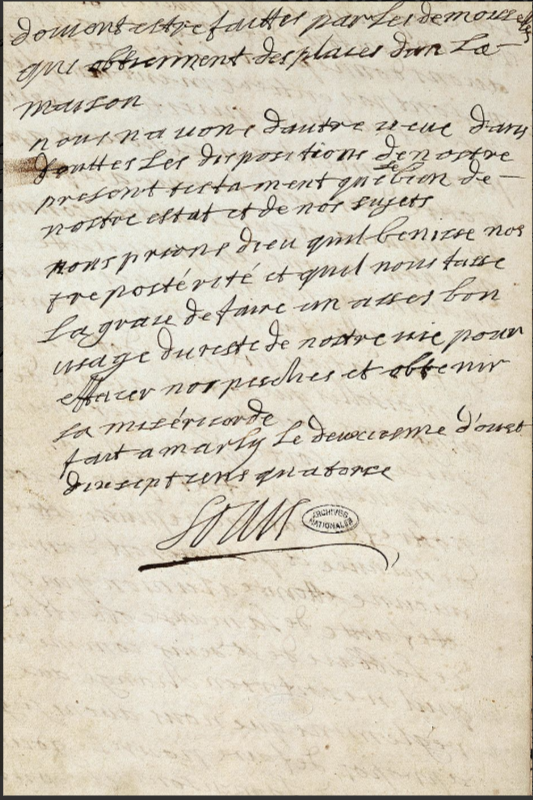 doivent estre faittes par les demoiselles
qui obtiennent des places dan La
maison
nous n avons dautre veue dans
touttes Les dispositions de nostre
present testament que le bien de
nostre estat et de nos sujets
nous prions dieu quil benisse nos
tre postérité et quil nous fasse
La grace de faire un asses bon
usage du reste de nostre vie pour
effacer nos pesches et obtenir
sa miséricorde
fait a marly le deuxiesme d'oust
dixsept cens quatorse
Louis
ARCHIVES
NATIONALES